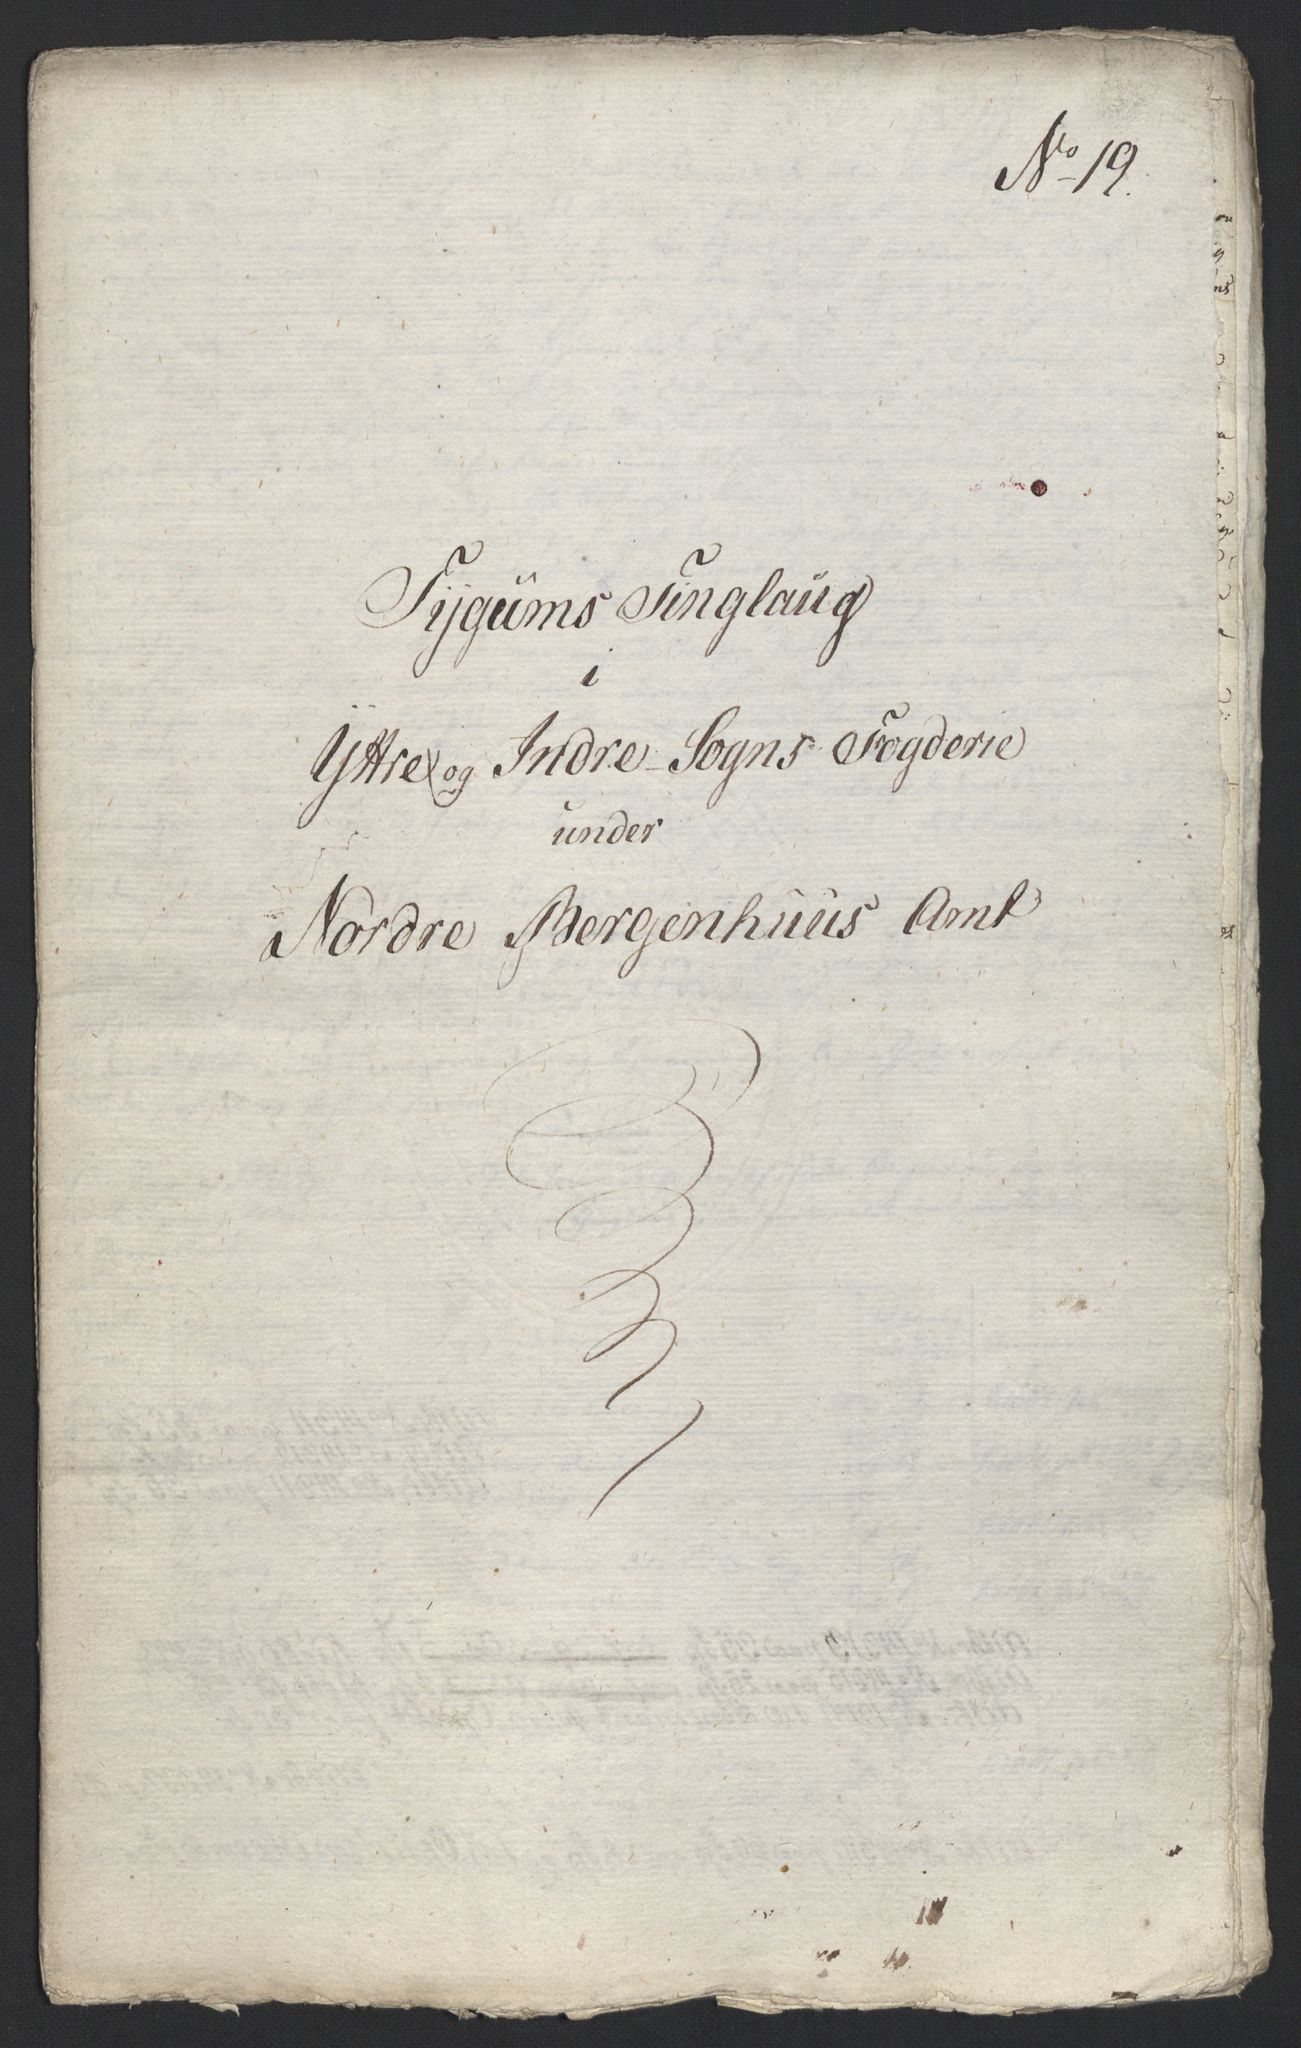 No 19.
Tÿgums Tinglaug
i
Yttre og Indre Sogns Fogderie
under
Nordre Bergenhuus Amt